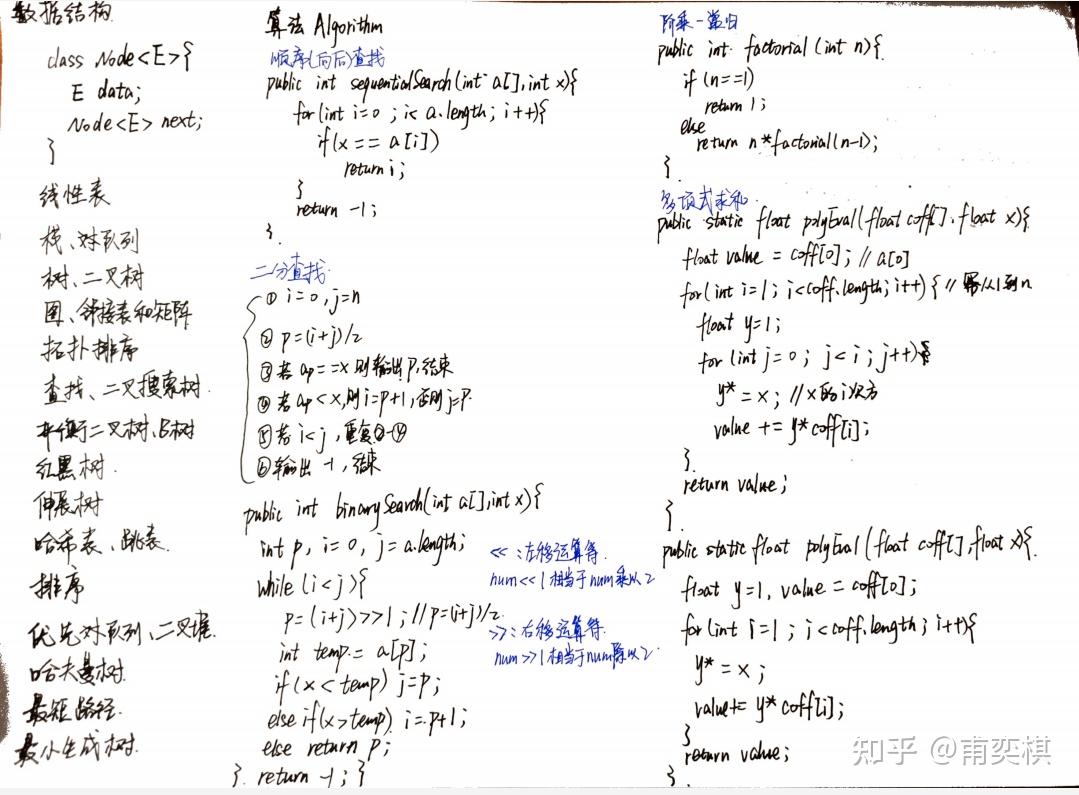 数据结构
class Node<E>{
E data;
Node<E> next;
}
线性表
栈、对队列
树、二叉树
图、邻接表和矩阵
拓扑排序
查找、二叉搜索树.
平衡二叉树、B树
红黑树.
伸展树
哈希表、跳表.
排序
优先对队列、二叉堆.
哈夫曼树.
最短路径.
最小生成树.
算法 Algorithm
顺序(向后)查找
public int sequentialSearch(int a[],int x){
for(int i=0 ; i< a.length; i++){
if(x == a[i])
return i;
}
return -1;
}.
二分查找.
① i=0, j=n
② p=(i+j)/2
③ 若 ap==x 则输出p,结束
④ 若 ap<x,则i=p+1,否则j=p.
⑤ 若 i<j,重复②-④
⑥ 输出 -1,结束
public int binarySearch(int a[],int x){
int p, i=0, j=a.length;
while (i<j){
p=(i+j)>>1; //p=(i+j)/2.
int temp = a[p];
if(x<temp) j=p;
else if(x>temp) i=p+1;
else return p;
}. return -1; }
<< :左移运算符.
num<<1相当于num乘以2
>>:右移运算符.
num>>1相当于num除以2.
阶乘-递归
public int factorial (int n){
if (n==1)
return 1;
else
return n*factorial(n-1);
}.
多项式求和.
public static float polyEval(float coff[], float x){
float value = coff[0]; // a[0]
for(int i=1; i<coff.length; i++) { // 幂从1到n
float y=1;
for (int j=0; j<i; j++)
y* = x; //x的i次方
value += y*coff[i];
}.
return value;
}
public static float polyEval (float coff[],float x){
float y=1, value = coff[0];
for(int i=1; i<coff.length; i++){
y* = x;
value+= y*coff[i];
}
return value;
}.
知乎 @甫奕棋